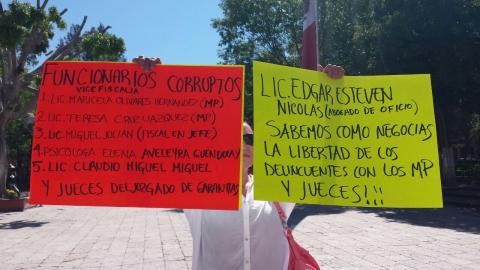 FUNCIONARIOS CORRUPTOS
VICEFISCALIA
1. LIC. MARICELA OLIVARES HERNANDEZ (MP)
2. LIC. TERESA CRUZ VAZQUEZ (MP)
3. LIC. MIGUEL JULIAN (FISCAL EN JEFE)
4. PSICÓLOGA ELENA AVELEYRA GUENDULAY
5. LIC. CLAUDIO MIGUEL MIGUEL
Y JUECES DEL JUZGADO DE GARANTIAS
LIC. EDGAR ESTEVEN
NICOLAS (ABOGADO DE OFICIO)
SABEMOS COMO NEGOCIAS
LA LIBERTAD DE LOS
DELINCUENTES CON LOS MP
Y JUECES!!!